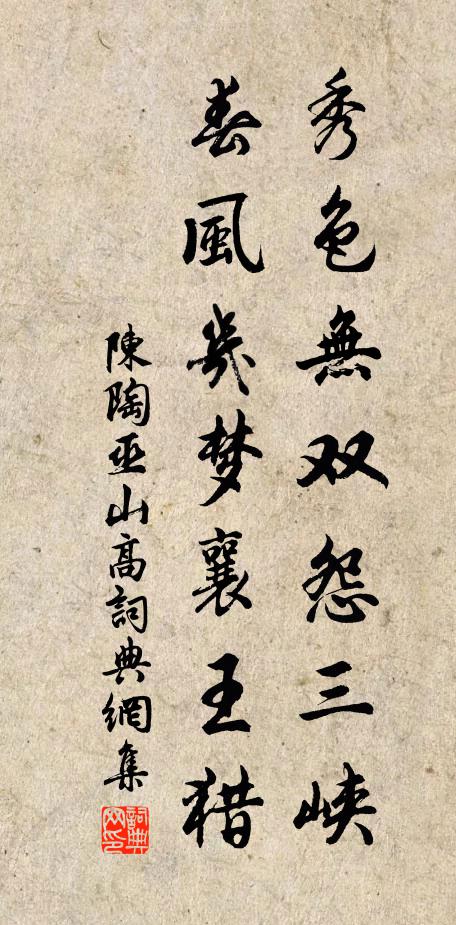 秀色無双怨三峡
春風幾梦襄王猎
陳陶巫山高詞典網集
詞典网印